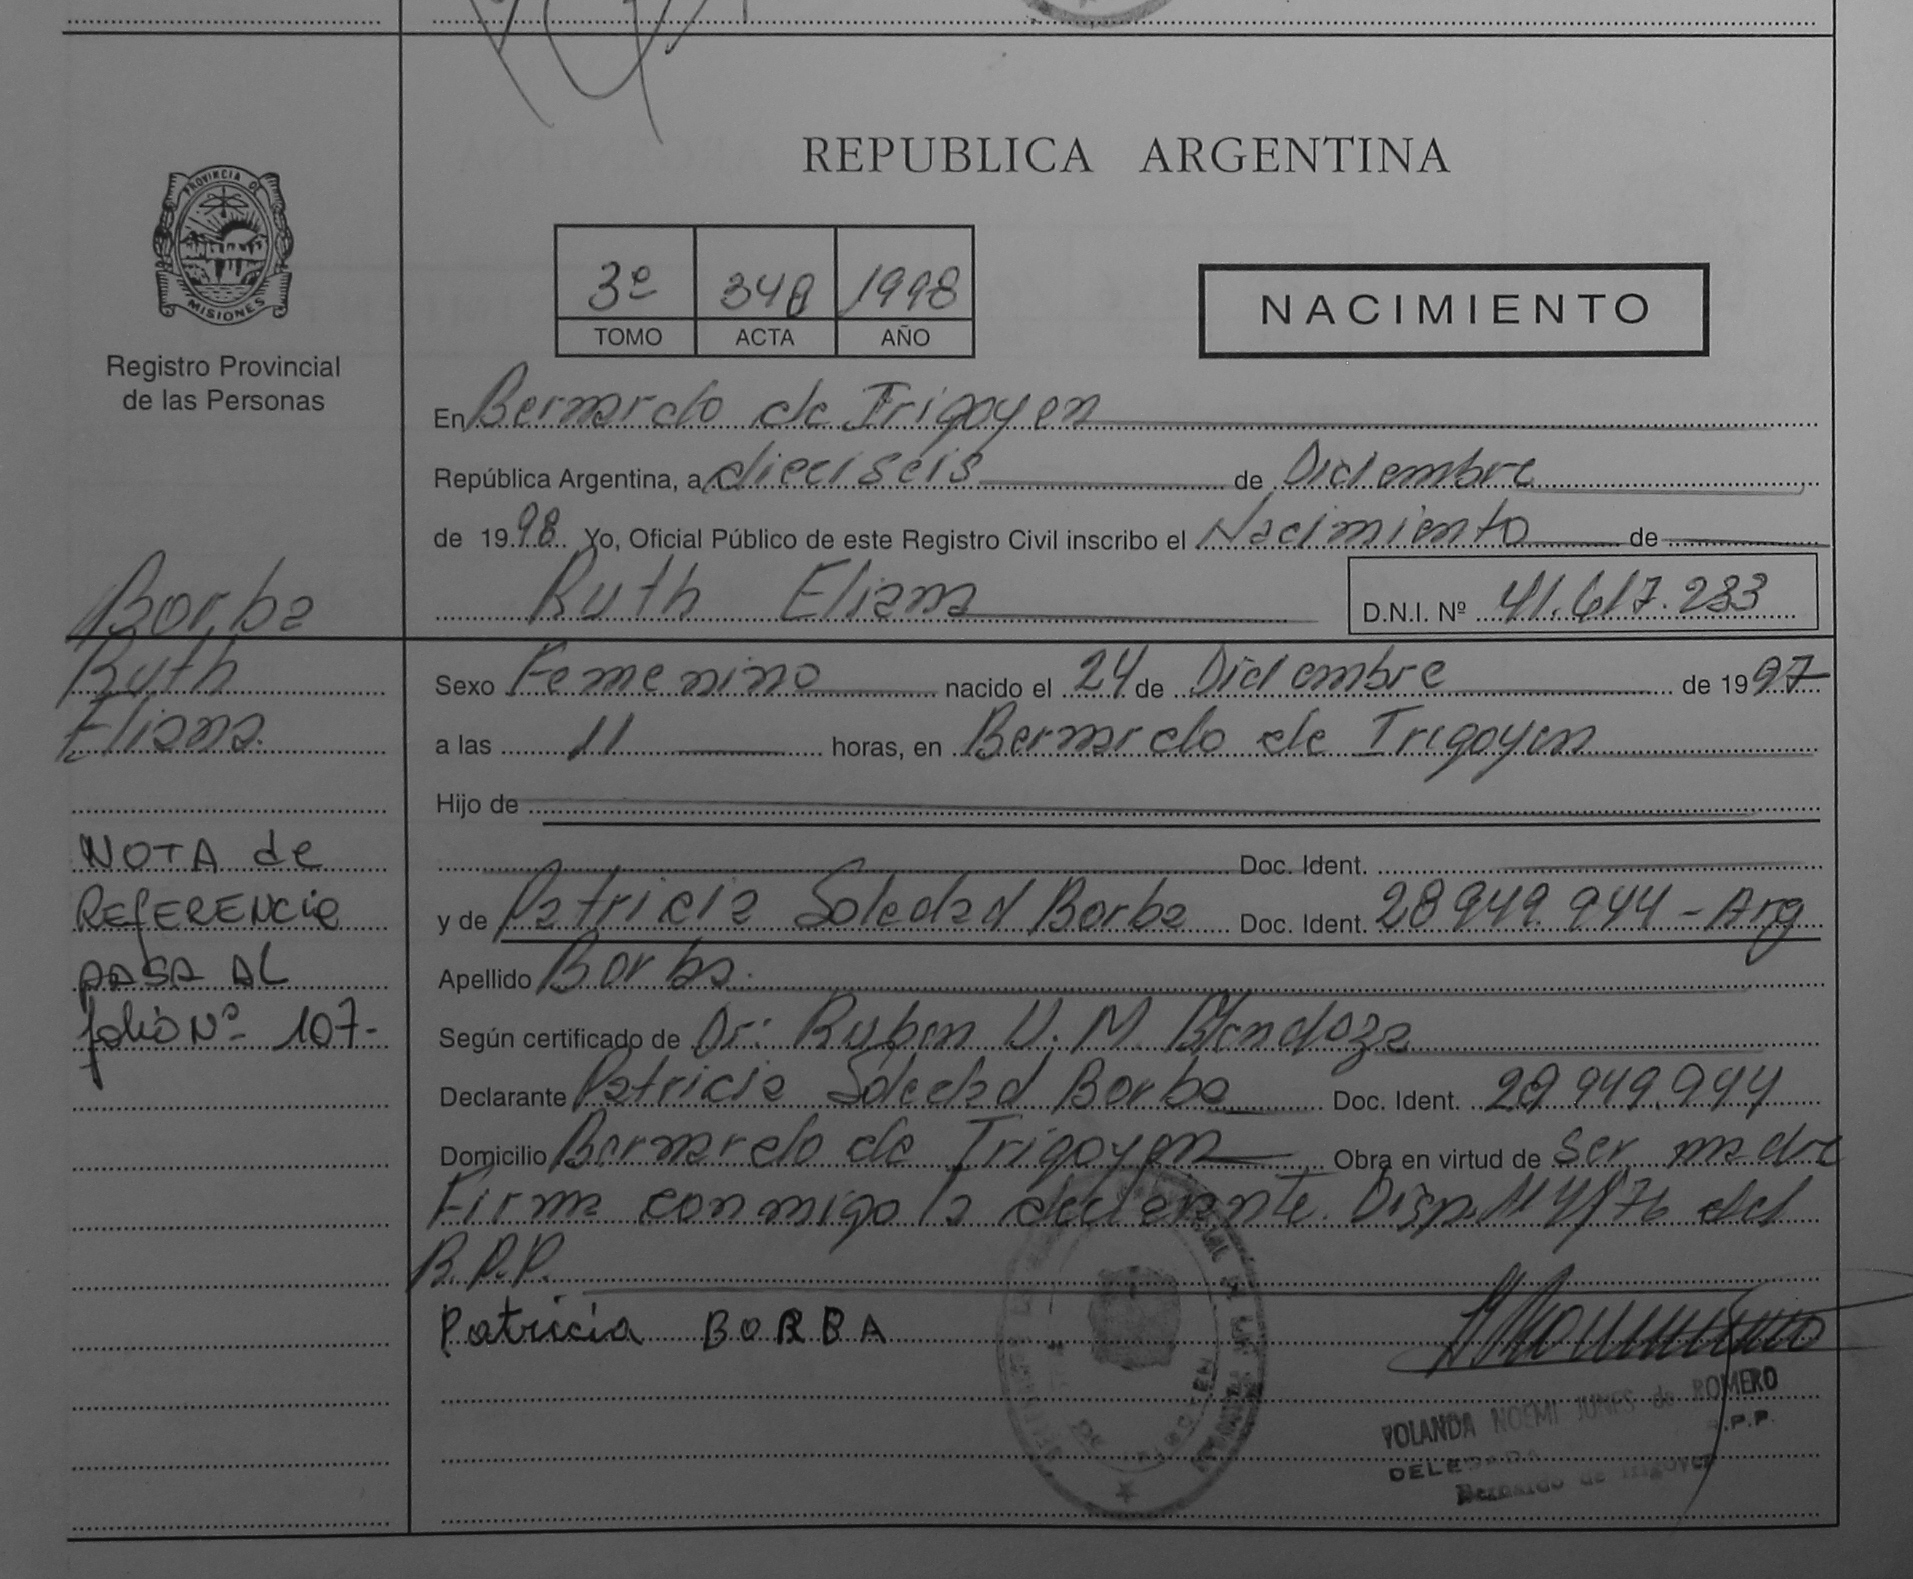 REPUBLICA ARGENTINA
PROVINCIA DE
MISIONES
Registro Provincial
de las Personas
3º 348 1998
TOMO ACTA AÑO
NACIMIENTO
En Bernardo de Irigoyen
República Argentina, a dieciseis de Diciembre
de 1998 Yo, Oficial Público de este Registro Civil inscribo el Nacimiento de
Ruth Eliana D.N.I. Nº 41.617.283
Borba
Ruth
Eliana
NOTA de
REFERENCia
PASA AL
folio Nº 107-
Sexo Femenino nacido el 24 de Diciembre de 1997
a las 11 horas, en Bernardo de Irigoyen
Hijo de
Doc. Ident.
y de Patricia Soledad Borba Doc. Ident. 28 949.944 - Arg
Apellido Borba
Según certificado de Dr: Ruben V. M. Mendoza
Declarante Patricia Soledad Borba Doc. Ident. 28 949.944
Domicilio Bernardo de Irigoyen Obra en virtud de ser madre
Firma conmigo la declarante. Disp. Nº 4/76 del
R.P.P.
Patricia BORBA
YOLANDA NOEMI JUNES de ROMERO
DELEGADA R.P.P.
Bernardo de Irigoyen